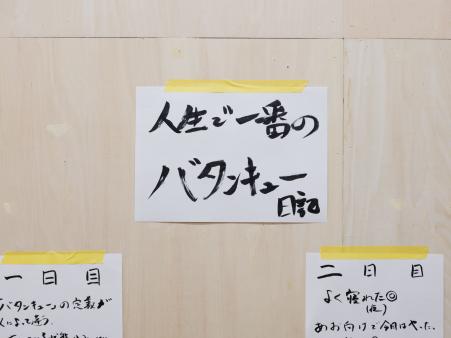 人生で一番の
バタンキュー
日記
一日目
「バタンキュー」の定義が
人によって違う。
二日目
よく寝れた◎
(仮)
あお向けで今日はやった。